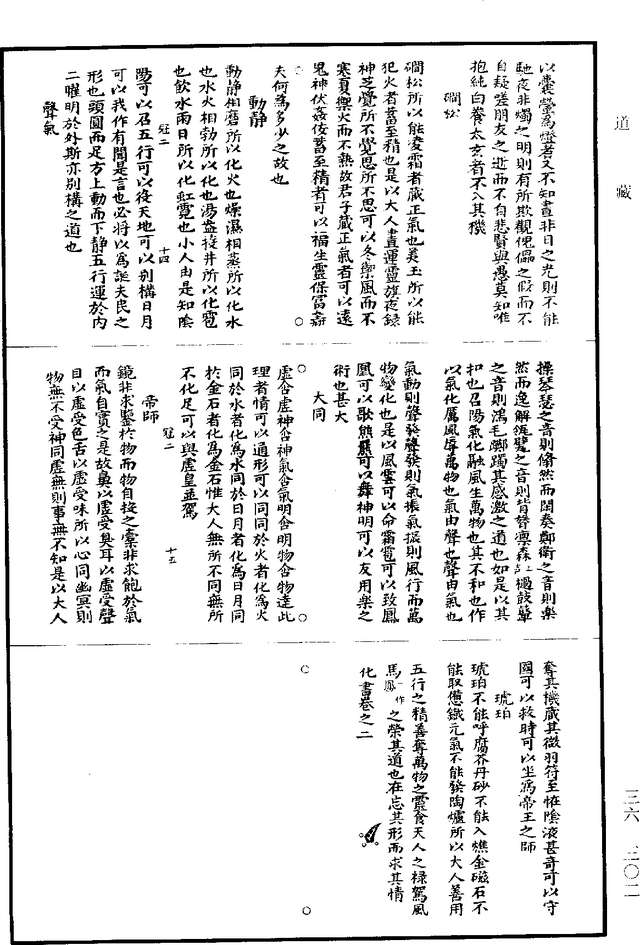 道藏
以囊螢爲燈者又不知晝非日之光則不能
馳夜非燭之明則有所欺觀傀儡之假而不
自疑嗟朋友之逝而不自悲賢與愚莫知唯
抱純白養太玄者不入其機
澗松
澗松所以能凌霜者藏正氣也美玉所以能
犯火者蓄至精也是以大人晝運靈旗夜錄
神芝覺所不覺思所不思可以冬禦風而不
寒夏禦火而不熱故君子藏正氣者可以遠
鬼神伏姦佞蓄至精者可以福生靈保富壽
夫何爲多少之故也
動靜
動靜相磨所以化火也燥濕相蒸所以化水
也水火相勃所以化也湯盎投井所以化雹
也飲水雨日所以化虹霓也小人由是知陰
冠二 十四
陽可以召五行可以役天地可以別構日月
可以我作有聞是言也必將以爲誕夫民之
形也頭圓而足方上動而下靜五行運於內
二曜明於外斯亦別構之道也
聲氣
操琴瑟之音則翛然而閑奏鄭衛之音則樂
然而逸解瓴甓之音則背膂凜森上撾鼓鼙
之音則鴻毛躑躅其感激之道也如是以其
和也召陽氣化融風生萬物也其不和也作
以氣化厲風辱萬物也氣由聲也聲由氣也
氣動則聲發聲發則氣振氣振則風行而萬
物變化也是以風雲可以命霜雹可以致鳳
凰可以歌熊羆可以舞神明可以友用樂之
術也甚大
大同
虛含虛神含神氣含氣明含明物含物達此
理者情可以通形可以同同於火者化爲火
同於水者化爲水同於日月者化爲日月同
於金石者化爲金石惟大人無所不同無所
不化足可以與虛皇並駕
冠二 十五
帝師
鏡非求鑒於物而物自投之橐非求飽於氣
而氣自實之是故鼻以虛受臭耳以虛受聲
目以虛受色舌以虛受味所以心同幽冥則
物無不受神同虛無則事無不知是以大人
奪其機藏其微羽符至怪陰液甚奇可以守
國可以救時可以坐爲帝王之師
琥珀
琥珀不能呼腐芥丹砂不能入燋金磁石不
能取憊鐵元氣不能發陶爐所以大人善用
五行之精善奪萬物之靈食天人之祿駕風
馬一作鳳之榮其道也在忘其形而求其情
化書卷之二
三六 三〇二